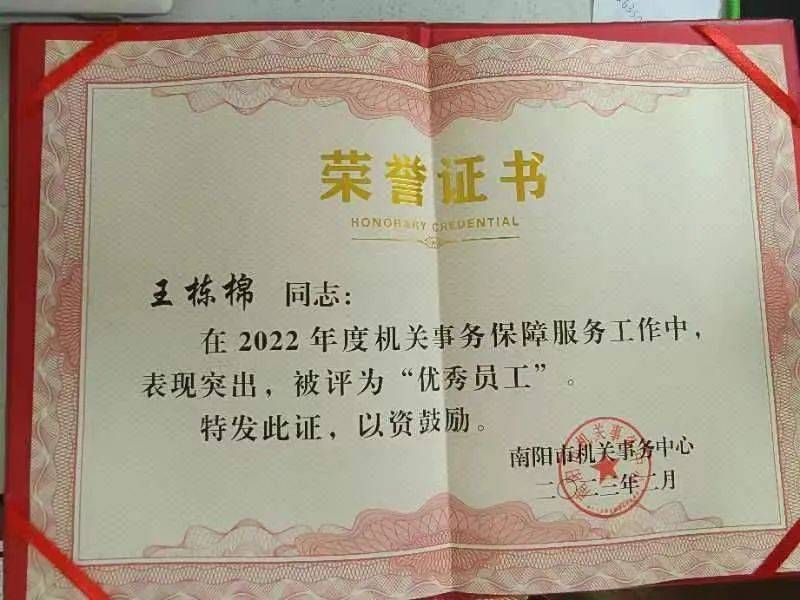 荣誉证书
HONORARY CREDENTIAL
王栋棉 同志：
在 2022 年度机关事务保障服务工作中，
表现突出，被评为“优秀员工”。
特发此证，以资鼓励。
南阳市机关事务中心
二〇二三年二月